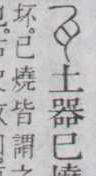 瓦土器已燒
坏。已燒皆謂之